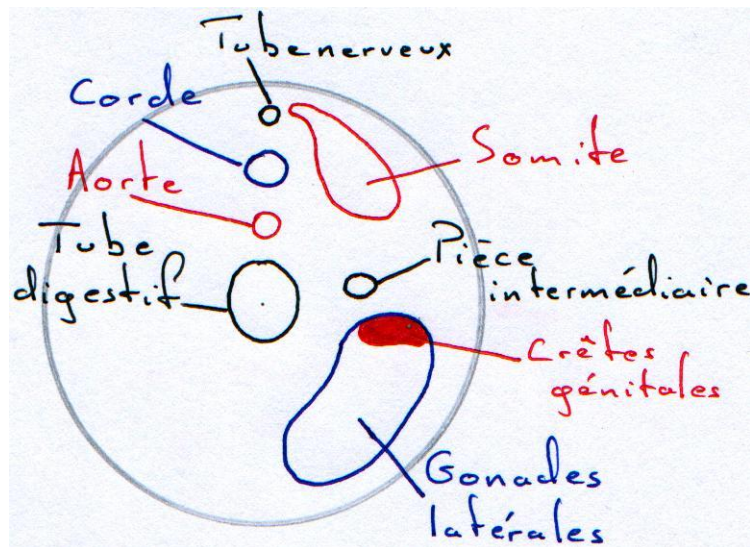 Tube nerveux
Corde
Aorte
Somite
Tube
digestif
Pièce
intermédiaire
Crêtes
génitales
Gonades
latérales